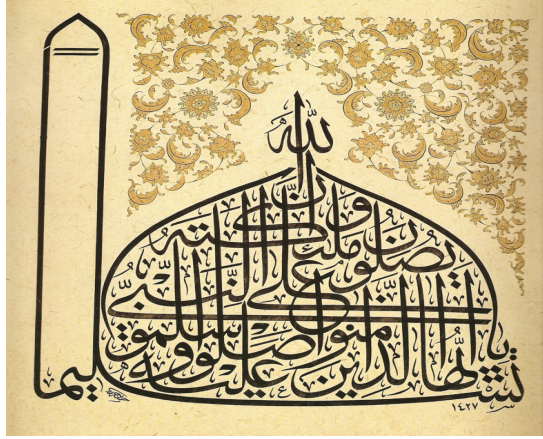 إِنَّ الله وملئكته يصلون على النَّبي
يا أيُّها الذين امنوا صلوا عليه وسلموا تسليما
١٤٢٧